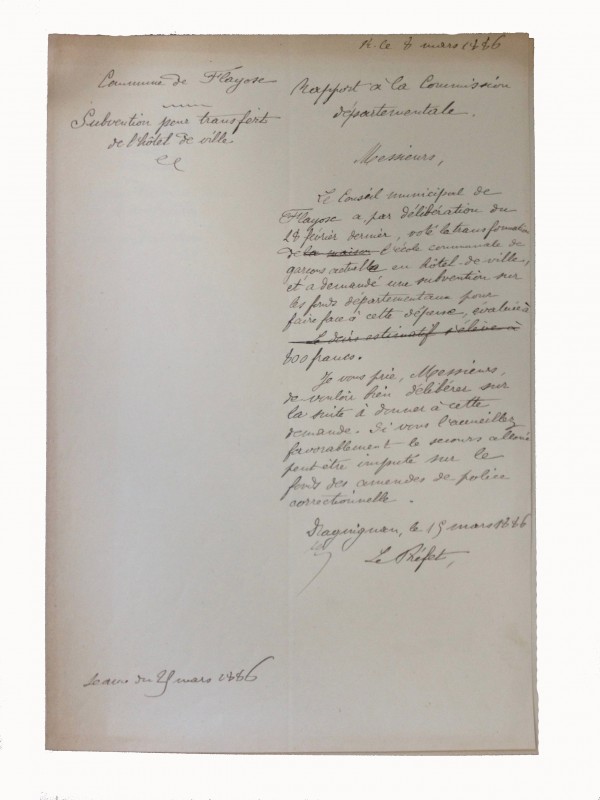 R. le 8 mars 1886
Commune de Flayosc
Subvention pour transfert
de l'hôtel de ville
Rapport à la Commission
départementale.
Messieurs,
Le Conseil municipal de
Flayosc a par délibération du
28 février dernier, voté la transformation
de la maison l'école communale de
garçons actuelle en hôtel-de-ville,
et a demandé une subvention sur
les fonds départementaux pour
faire face à cette dépense, évaluée à
Le devis estimatif s'élève à
800 francs.
Je vous prie, Messieurs,
de vouloir bien délibérer sur
la suite à donner à cette
demande. Si vous l'accueillez
favorablement le secours alloué
peut être imputé sur le
fonds des amendes de police
correctionnelle.
Draguignan, le 15 mars 1886
Le Préfet,
Séance du 25 mars 1886